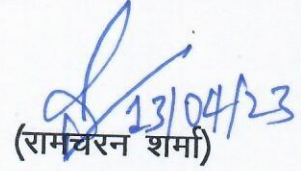 13/04/23
(रामचरन शर्मा)